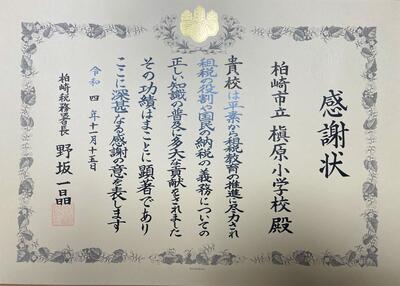 感謝状
柏崎市立 槇原小学校 殿
貴校は平素から租税教育の推進に尽力され
租税の役割や国民の納税の義務についての
正しい知識の普及に多大な貢献をされました
その功績はまことに顕著であり
ここに深甚なる感謝の意を表します
令和四年十一月十五日
柏崎税務署長 野坂一晶